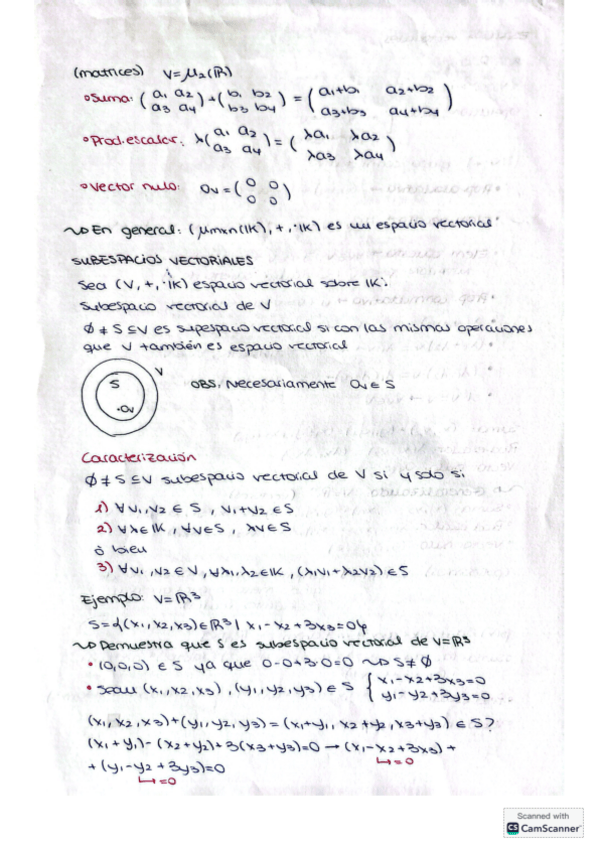 (matrices) V=M₂(ℝ)
• Suma: (a₁ a₂ / a₃ a₄) + (b₁ b₂ / b₃ b₄) = (a₁+b₁ a₂+b₂ / a₃+b₃ a₄+b₄)
• Prod. escalar: λ(a₁ a₂ / a₃ a₄) = (λa₁ λa₂ / λa₃ λa₄)
• Vector nulo: 0v = (0 0 / 0 0)
~> En general: (Mmxn(IK), +, ·IK) es un espacio vectorial
SUBESPACIOS VECTORIALES
Sea (V, +, ·IK) espacio vectorial sobre IK.
Subespacio vectorial de V
∅ ≠ S ⊆ V es supespacio vectorial si con las mismas operaciones
que V también es espacio vectorial
V
S
·0v
OBS. Necesariamente 0v ∈ S
Caracterización
∅ ≠ S ⊆ V subespacio vectorial de V si y solo si
1) ∀v₁,v₂ ∈ S, v₁+v₂ ∈ S
2) ∀λ∈IK, ∀v∈S, λv∈S
ó bien
3) ∀v₁,v₂∈V, ∀λ₁,λ₂∈IK, (λ₁v₁+λ₂v₂)∈S
Ejemplo: V=ℝ³
S={(x₁,x₂,x₃)∈ℝ³ | x₁-x₂+3x₃=0}
~> Demuestra que S es subespacio vectorial de V=ℝ³
• (0,0,0) ∈ S ya que 0-0+3·0=0 ~> S≠∅
• Sean (x₁,x₂,x₃), (y₁,y₂,y₃) ∈ S { x₁-x₂+3x₃=0 / y₁-y₂+3y₃=0
(x₁,x₂,x₃)+(y₁,y₂,y₃) = (x₁+y₁, x₂+y₂, x₃+y₃) ∈ S?
(x₁+y₁)-(x₂+y₂)+3(x₃+y₃)=0 → (x₁-x₂+3x₃) +
↳=0
+ (y₁-y₂+3y₃)=0
↳=0
Scanned with
CS CamScanner